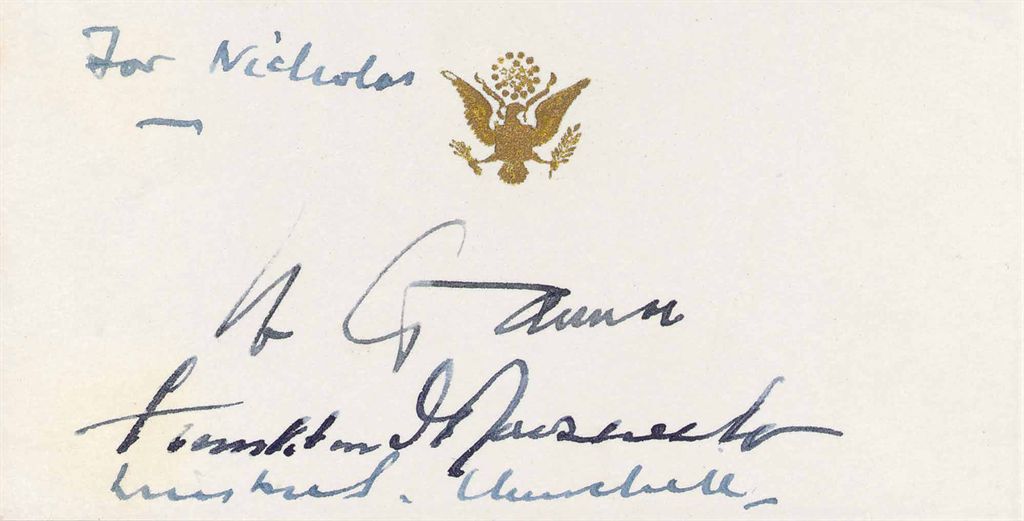 For Nicholas
И. Сталин
Franklin D Roosevelt
Winston S. Churchill